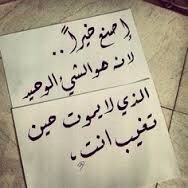 إصنع خيراً ..
لأنه هو الشيء الوحيد
الذي لا يموت حين
تغيب أنت ،